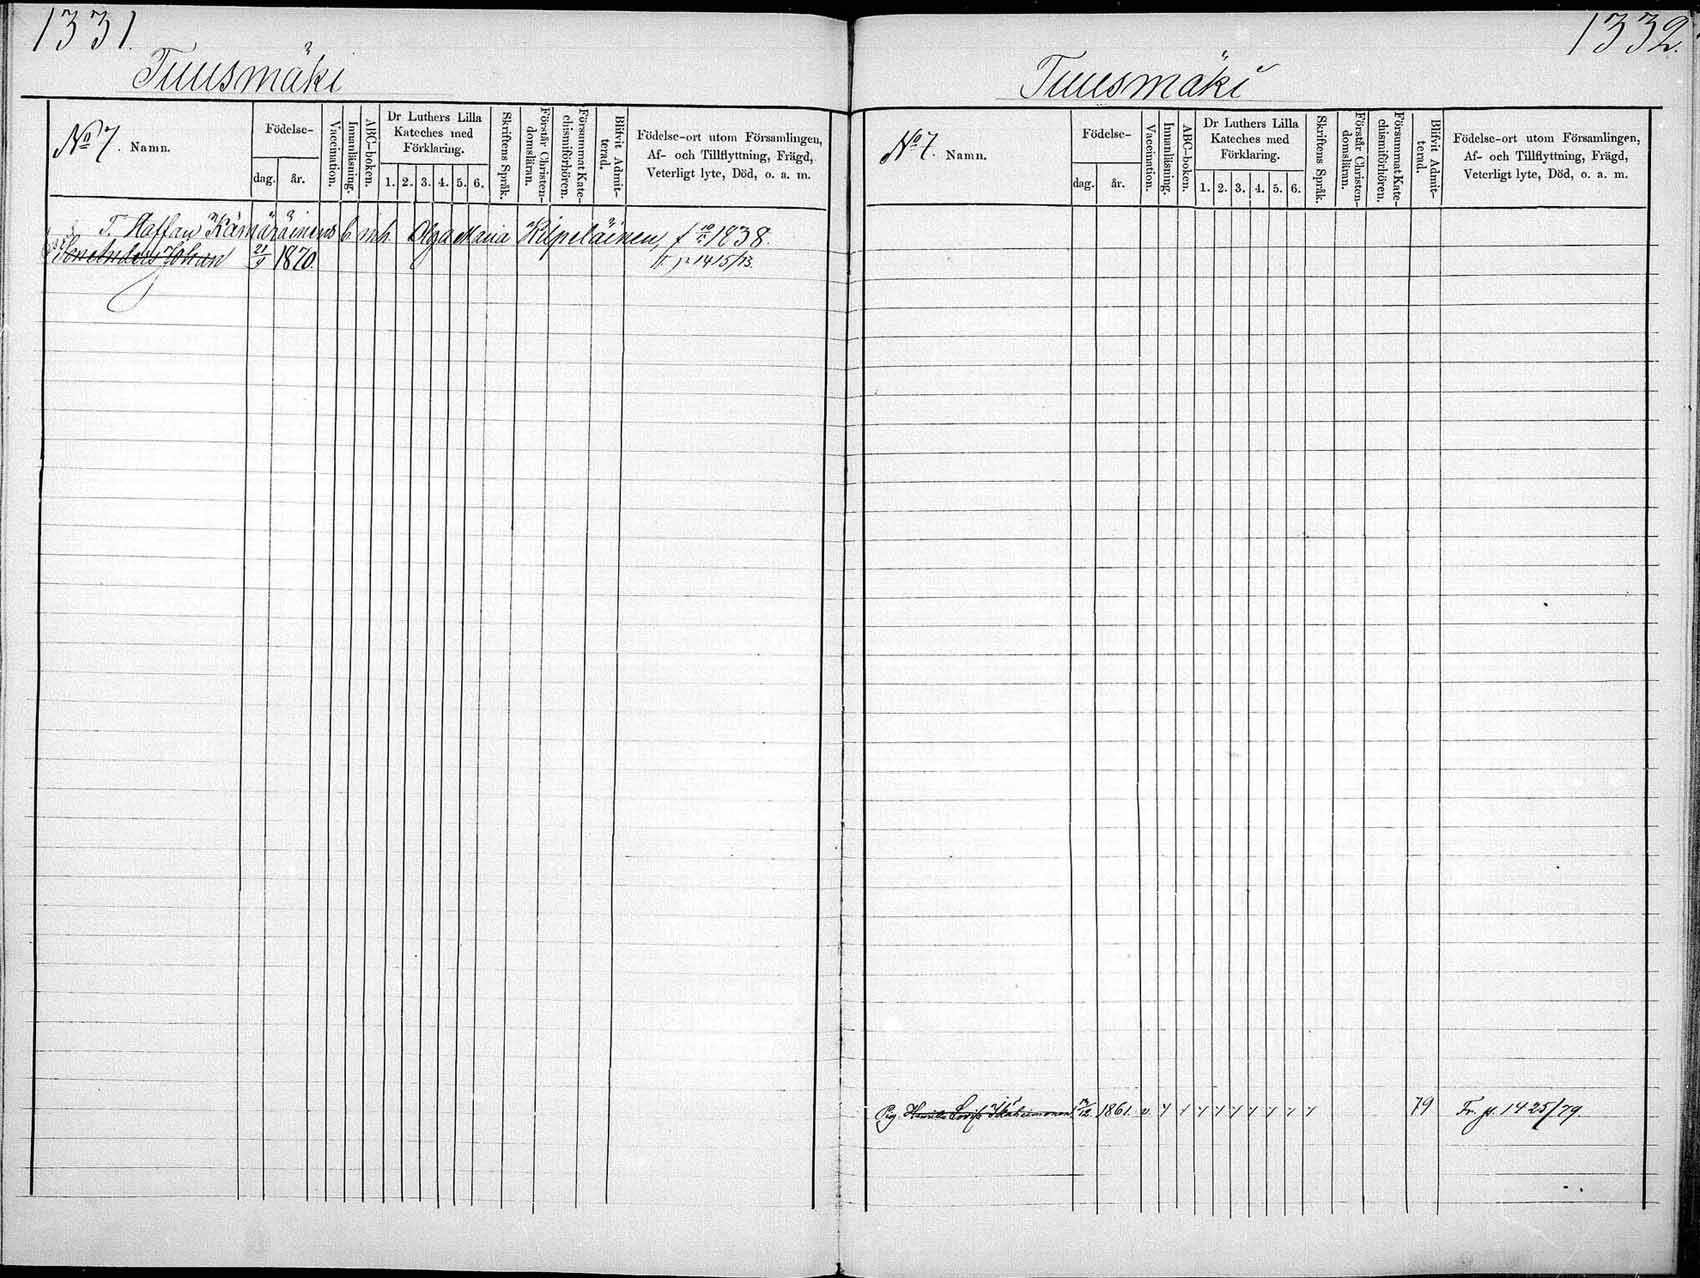 1331.
Tuusmäki
No 7. Namn.
Födelse-
dag. år.
Vaccination.
Innanläsning.
ABC-boken.
Dr Luthers Lilla
Kateches med
Förklaring.
1. 2. 3. 4. 5. 6.
Skriftens Språk.
Förstår Christen-
domsläran.
Försummat Kate-
chismiförhören.
Blifvit Admit-
terad.
Födelse-ort utom Församlingen,
Af- och Tillflyttning, Frägd,
Veterligt lyte, Död, o. a. m.
T. Staffan Kämäräinens b. m. h. Olga Maria Kilpeläinen, f 1838.
Son Anders Johan 21/9 1870. p 1415/73.
1332.
Tuusmäki
No 7. Namn.
Födelse-
dag. år.
Vaccination.
Innanläsning.
ABC-boken.
Dr Luthers Lilla
Kateches med
Förklaring.
1. 2. 3. 4. 5. 6.
Skriftens Språk.
Förstår Christen-
domsläran.
Försummat Kate-
chismiförhören.
Blifvit Admit-
terad.
Födelse-ort utom Församlingen,
Af- och Tillflyttning, Frägd,
Veterligt lyte, Död, o. a. m.
Pig. 1861. 79 Fr. p. 1425/79.